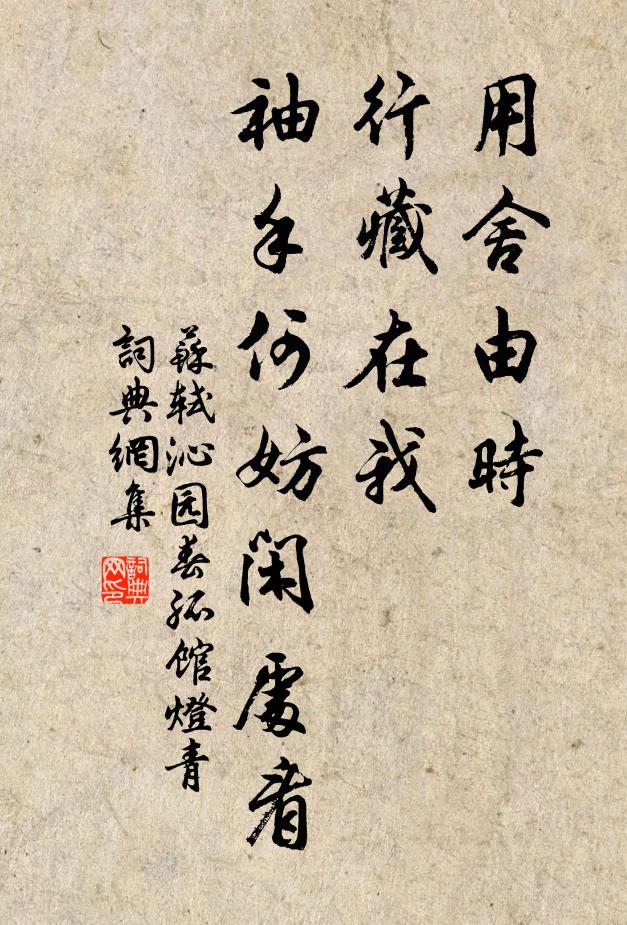 用舍由時
行藏在我
袖手何妨閑處看
蘇軾沁园春孤館燈青
詞典網集
詞典网印